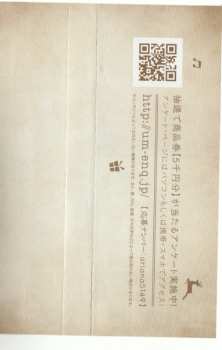 抽選で商品券【5千円分】が当たるアンケート実施中！
アンケート・ページにはパソコンもしくは携帯・スマホでアクセス！
http://um-enq.jp/ 【応募ナンバー：oriono5149】